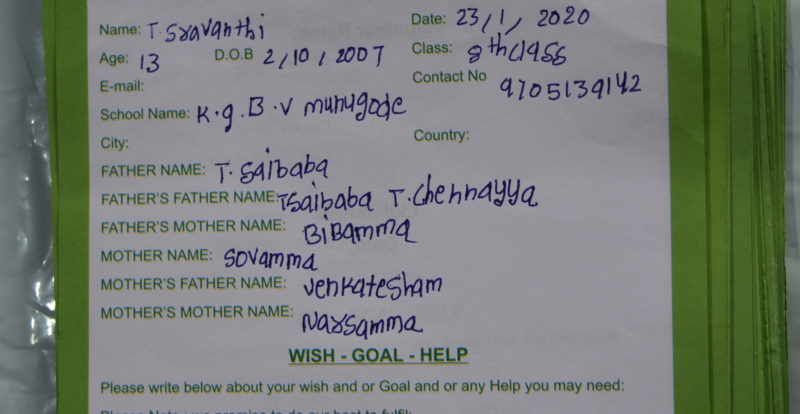 Name: T. Sravanthi Date: 23/1/2020
Age: 13 D.O.B 2/10/2007 Class: 8th class
E-mail: Contact No 9705139142
School Name: K.g.B.V munugode
City: Country:
FATHER NAME: T. Saibaba
FATHER'S FATHER NAME: TSaibaba T.chennayya
FATHER'S MOTHER NAME: BiBamma
MOTHER NAME: Sovamma
MOTHER'S FATHER NAME: venkatesham
MOTHER'S MOTHER NAME: Narsamma
WISH - GOAL - HELP
Please write below about your wish and or Goal and or any Help you may need: